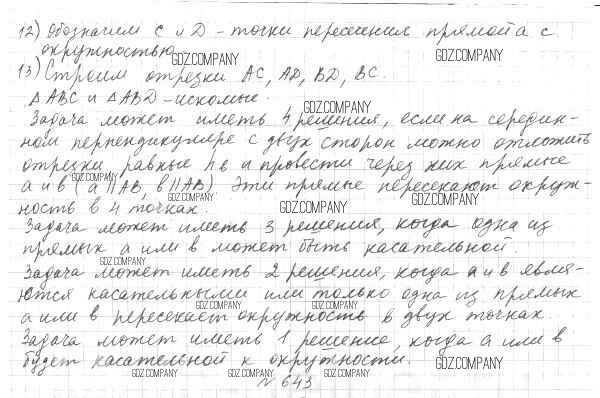 12) Обозначим C и D - точки пересечения прямой a с
окружностью.
GDZ.COMPANY
GDZ.COMPANY
13) Строим отрезки AC, AD, BD, BC.
△ABC и △ABD - искомые.
GDZ.COMPANY
Задача может иметь 4 решения, если на середин-
ном перпендикуляре с двух сторон можно отложить
отрезки равные hc и провести через них прямые
GDZ.COMPANY
a и b (a || AB, b || AB). Эти прямые пересекают окруж-
GDZ.COMPANY
ность в 4 точках.
GDZ.COMPANY
GDZ.COMPANY
Задача может иметь 3 решения, когда одна из
прямых a или b может быть касательной.
GDZ.COMPANY
Задача может иметь 2 решения, когда a и b явля-
ются касательными или только одна из прямых
GDZ.COMPANY
GDZ.COMPANY
a или b пересекает окружность в двух точках.
GDZ.COMPANY
Задача может иметь 1 решение, когда a или b
будет касательной к окружности.
GDZ.COMPANY
GDZ.COMPANY
GDZ.COMPANY
GDZ.COMPANY
N 643